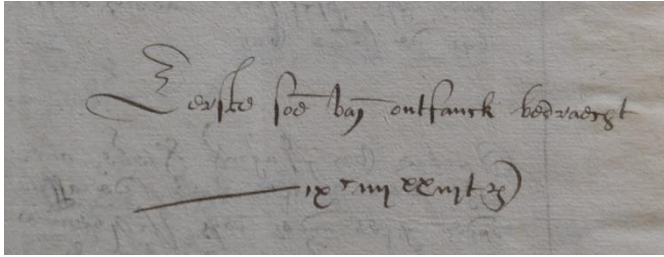 Eerste soē van ontfanck bedraecht
ixᶜ iiij xxiij t ß